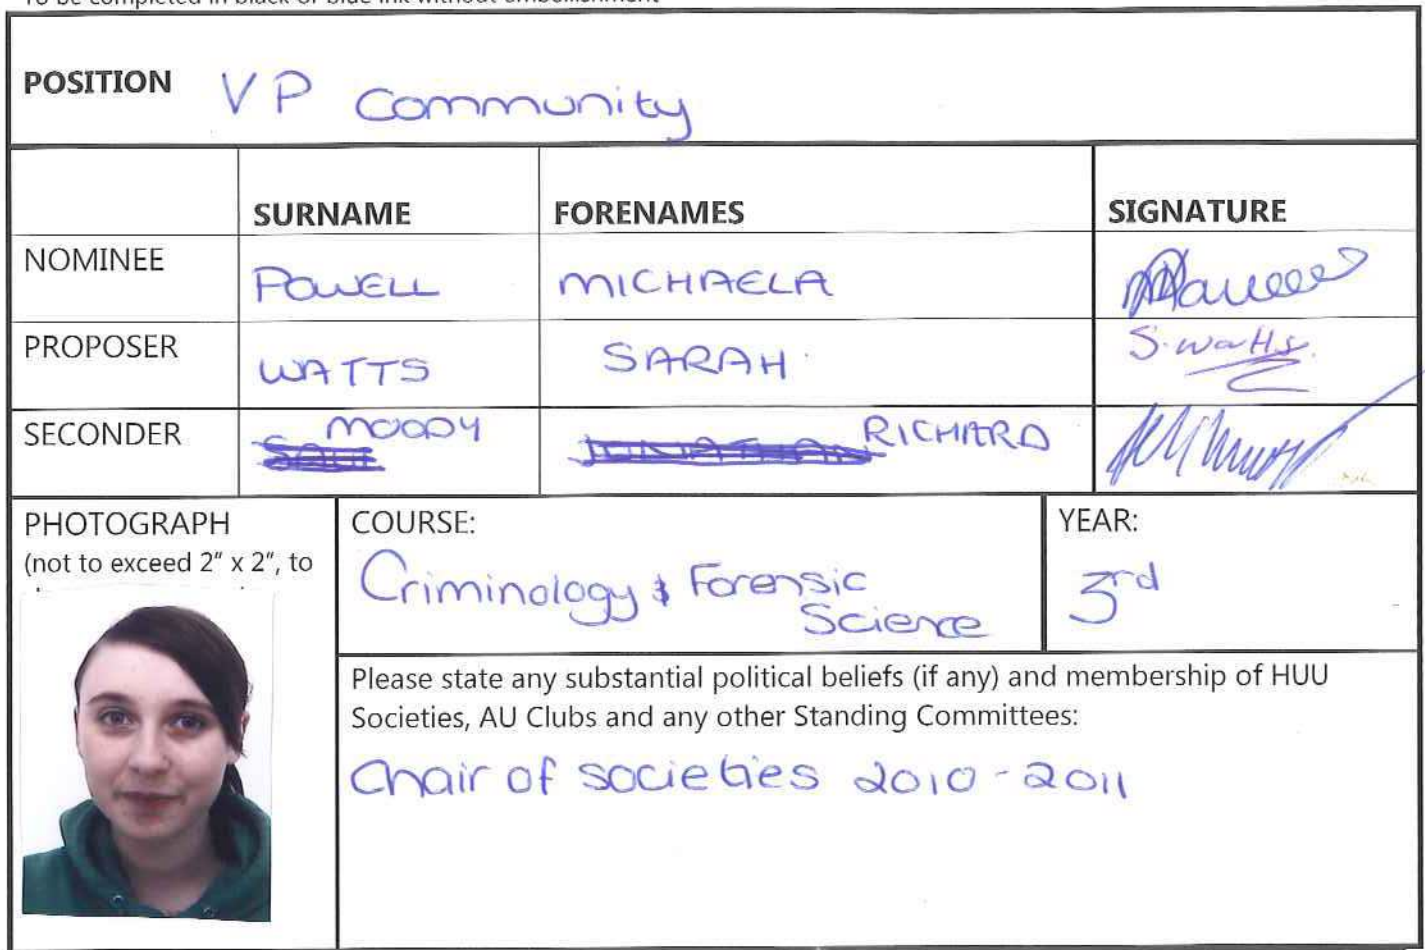 To be completed in black or blue ink without embellishment
POSITION VP Community
SURNAME FORENAMES SIGNATURE
NOMINEE POWELL MICHAELA
PROPOSER WATTS SARAH S. Watts
SECONDER MOODY RICHARD
PHOTOGRAPH
(not to exceed 2" x 2", to
COURSE:
Criminology & Forensic
Science
YEAR:
3rd
Please state any substantial political beliefs (if any) and membership of HUU
Societies, AU Clubs and any other Standing Committees:
Chair of societies 2010-2011